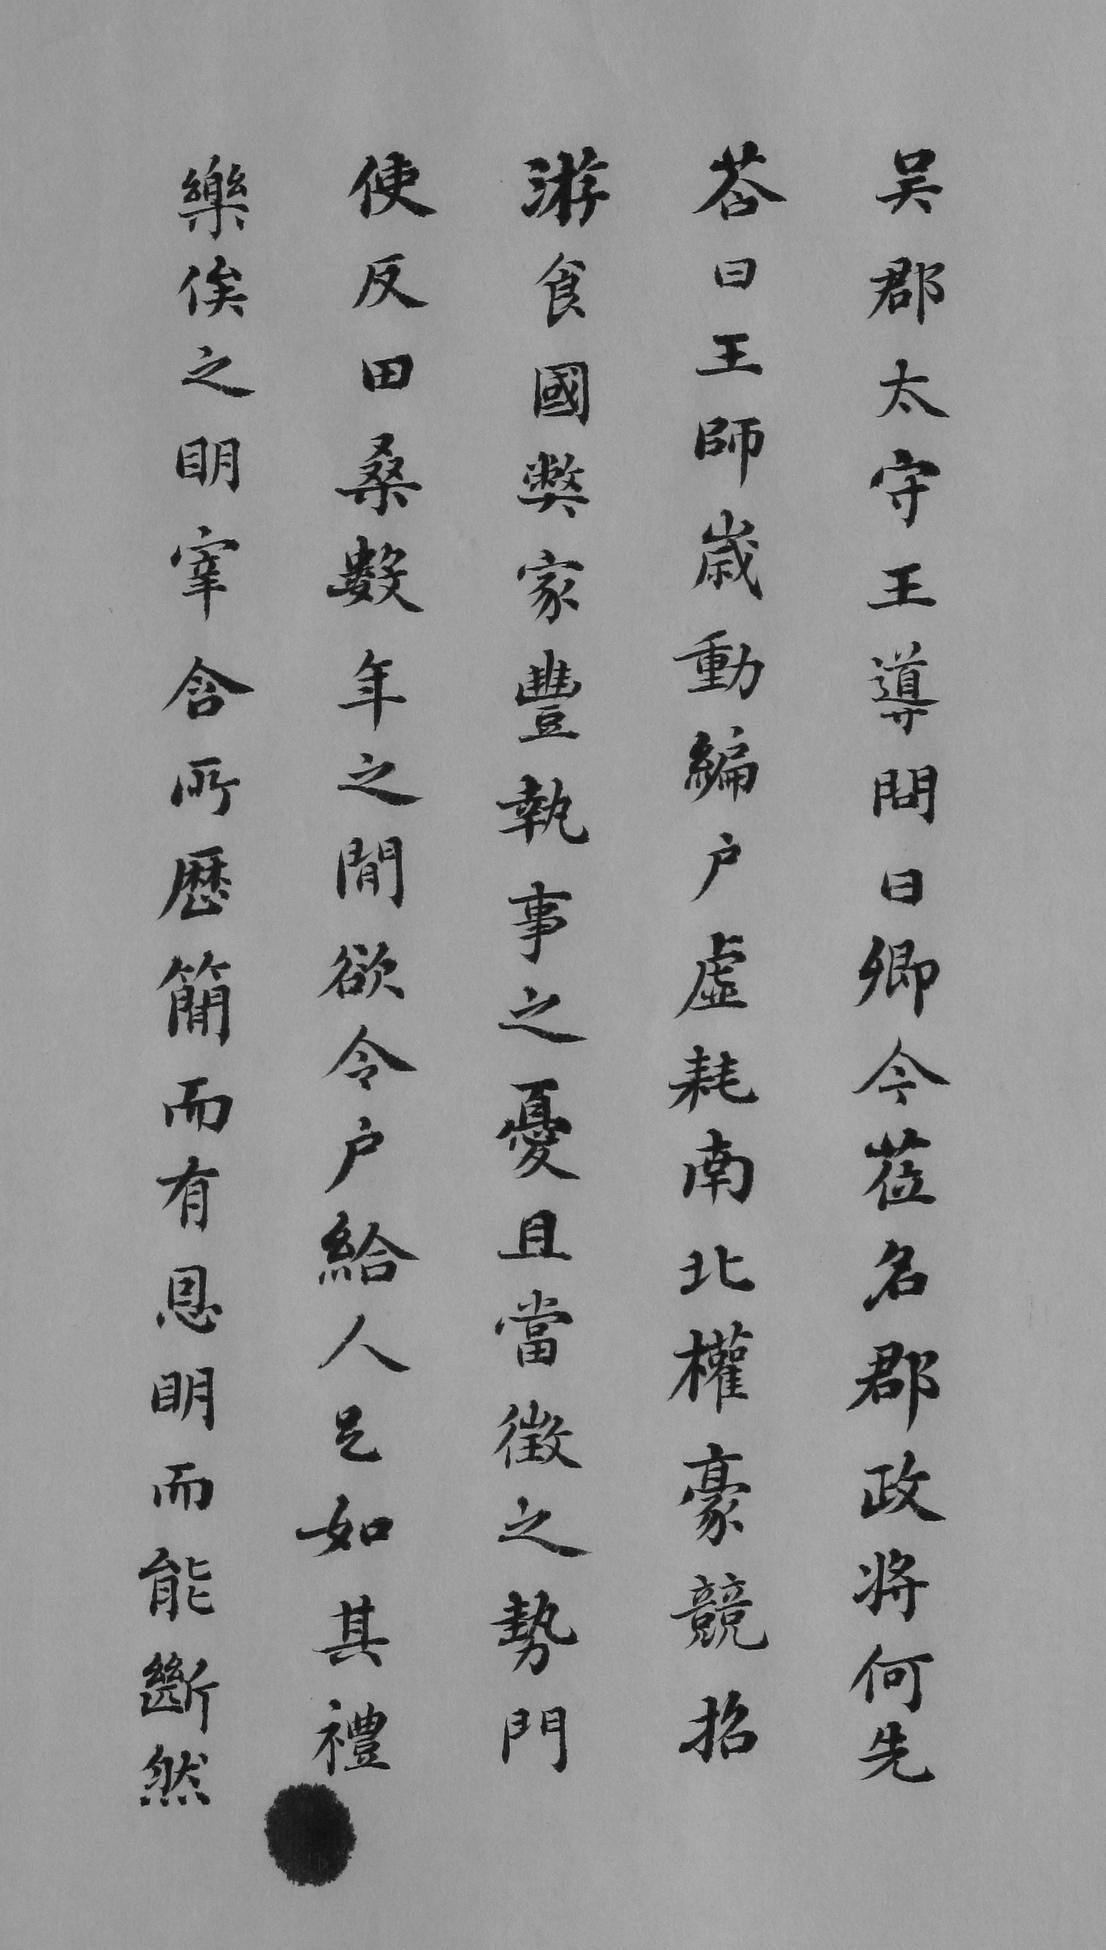 吴郡太守王導問曰卿今莅名郡政将何先
荅曰王師歳動編户虛耗南北權豪競招
游食國弊家豐執事之憂且當徴之勢門
使反田桑數年之間欲令户給人足如其禮
樂俟之明宰含所歷簡而有恩明而能斷然